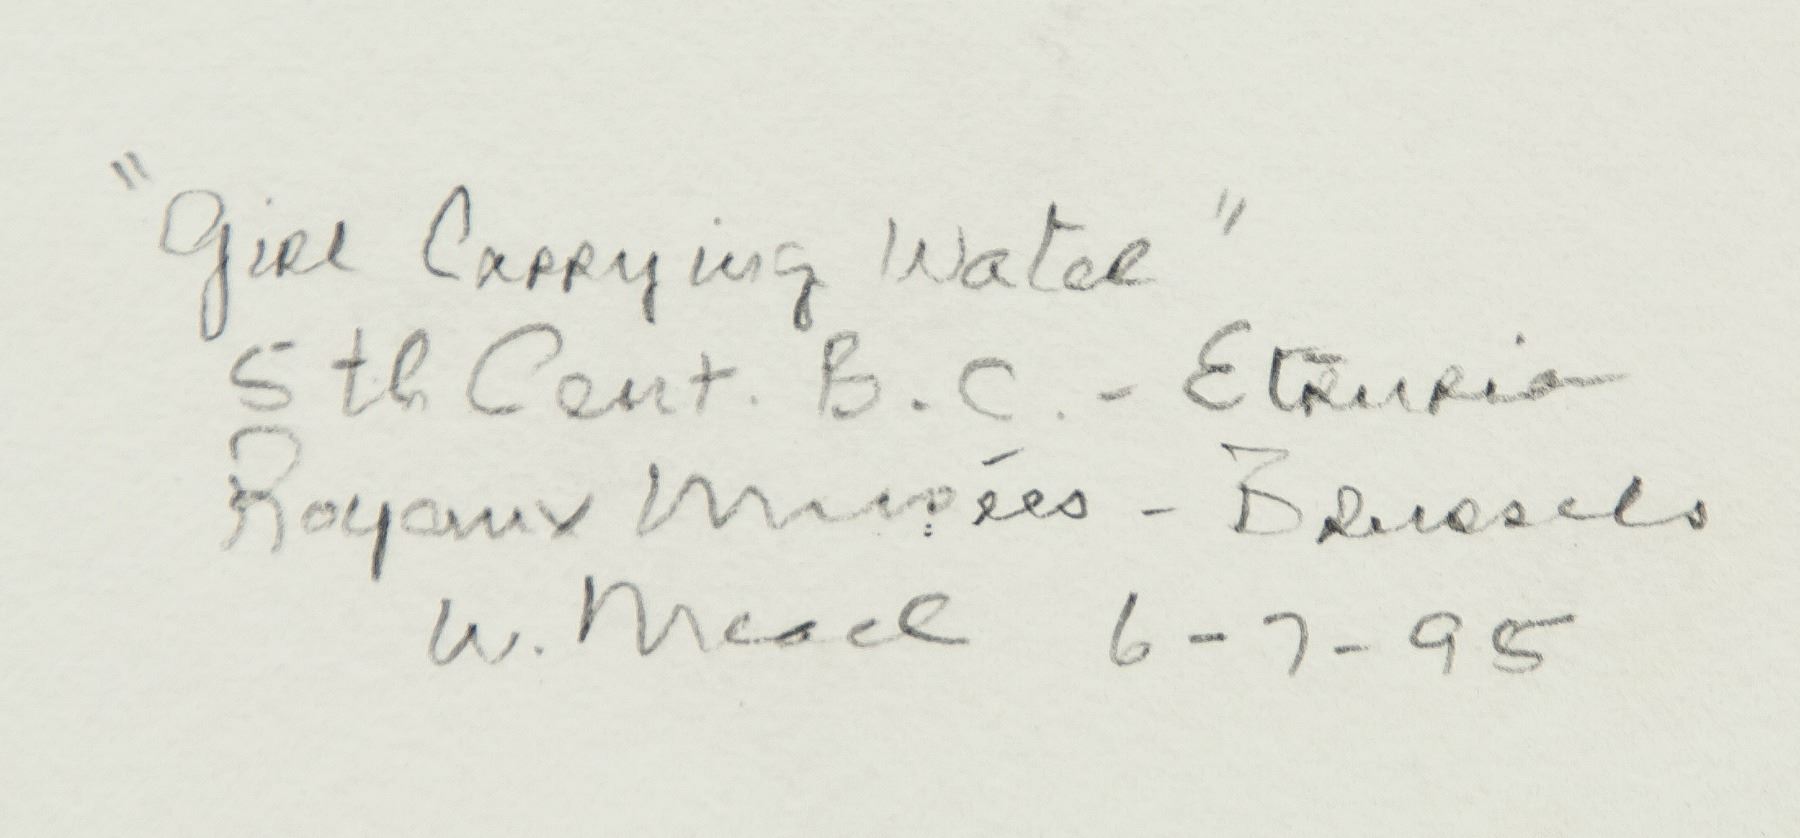 "Girl Carrying Water"
5th Cent. B.C. - Etruria
Royaux Musées - Brussels
W. 6-7-95